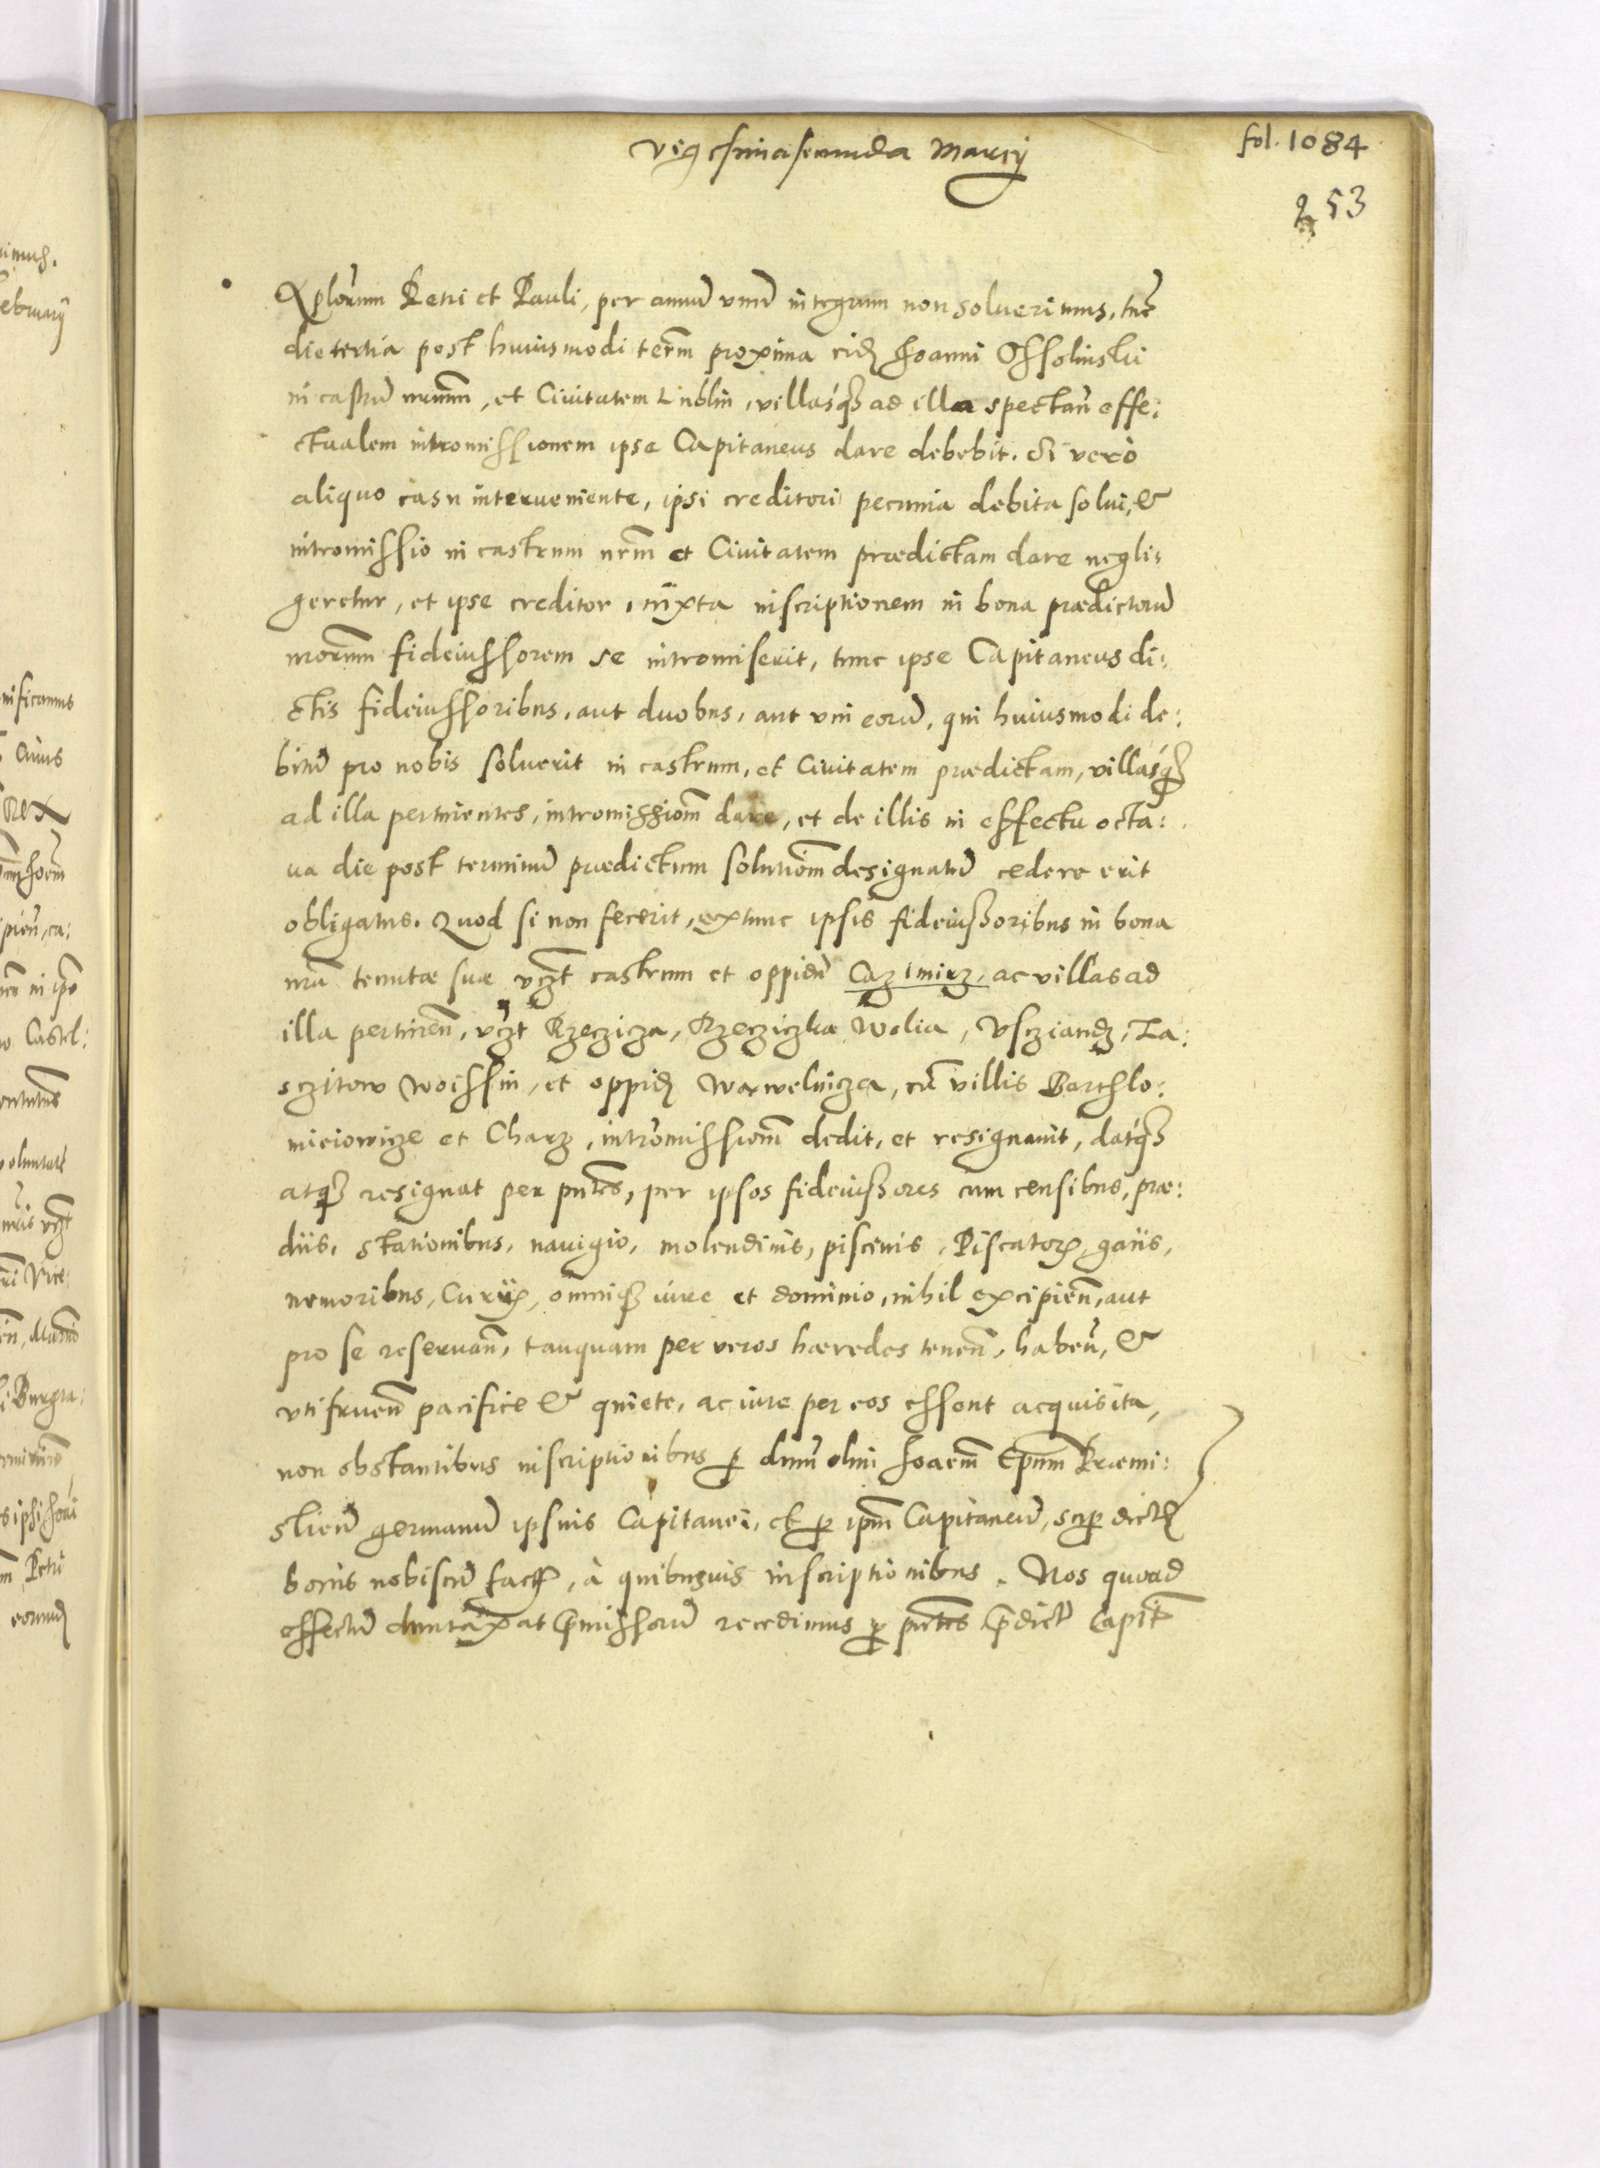 Vigesimasecunda Marcij
fol. 1084
253
Aplorum Petri et Pauli, per annũ vnũ integrum non soluerimus, tũc
die tertia post huiusmodi term̃ proxima eid. Joanni Ossolinskii
in castrũ nrm̃, et Ciuitatem Lublin, villasq3 ad illa spectan̄ effe:
ctualem intromissionem ipse Capitaneus dare debebit. Si verò
aliquo casu interueniente, ipsi creditori pecunia debita solui, &
intromissio in castrum nrm̃ et Ciuitatem prædictam dare negli:
geretur, et ipse creditor, iuxta inscriptionem in bona prædictorũ
nrorum fideiussorem se intromiserit, tunc ipse Capitaneus di:
ctis fideiussoribus, aut duobus, aut vni eorũ, qui huiusmodi de:
bitũ pro nobis soluerit in castrum, et Ciuitatem prædictam, villasq3
ad illa pertinentes, intromissiom̃ dare, et de illis in effectu octa:
ua die post terminũ prædictum solutiom̃ designatũ cedere erit
obligatus. Quod si non fecerit, extunc ipsis fideiussoribus in bona
nrã tenutæ suæ vcz̃t castrum et oppidũ Cazimirz, ac villas ad
illa pertinen̄, vcz̃t Rzeczicza, Rzecziczka Wolia, Vscziandz, La:
sczitow Woissin, et oppid. Wawelnicza, cũ villis Barthlo:
mieiowicze et Charz, intromissiom̃ dedit, et resignauit, datq3
atq3 resignat per pñtes, per ipsos fideiussores cum censibus, præ:
diis, stationibus, nauigio, molendinis, piscinis, Piscator., gaiis,
nemoribus, Curiis, omniq3 iure et dominio, nihil excipien̄, aut
pro se reseruan̄, tanquam per veros hæredes tenen̄, haben̄, &
vtifruen̄ pacifice & quiete, ac iure per eos essent acquisita,
non obstantibus inscriptionibus p dnũ olim Joanm̃ Epum Præmi:
slien̄ germanũ ipsius Capitanei, et p ipm̃ Capitaneũ, sup dict.
bonis nobiscũ fact., à quibusuis inscriptionibus. Nos quoad
effectũ duntaxat p̃missorũ recedimus p pñtes p̃dict. Capit.